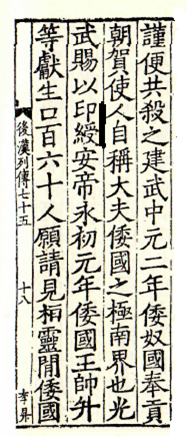 謹便共殺之建武中元二年倭奴國奉貢
朝賀使人自稱大夫倭國之極南界也光
武賜以印綬安帝永初元年倭國王帥升
等獻生口百六十人願請見桓靈閒倭國
後漢列傳七十五 十八